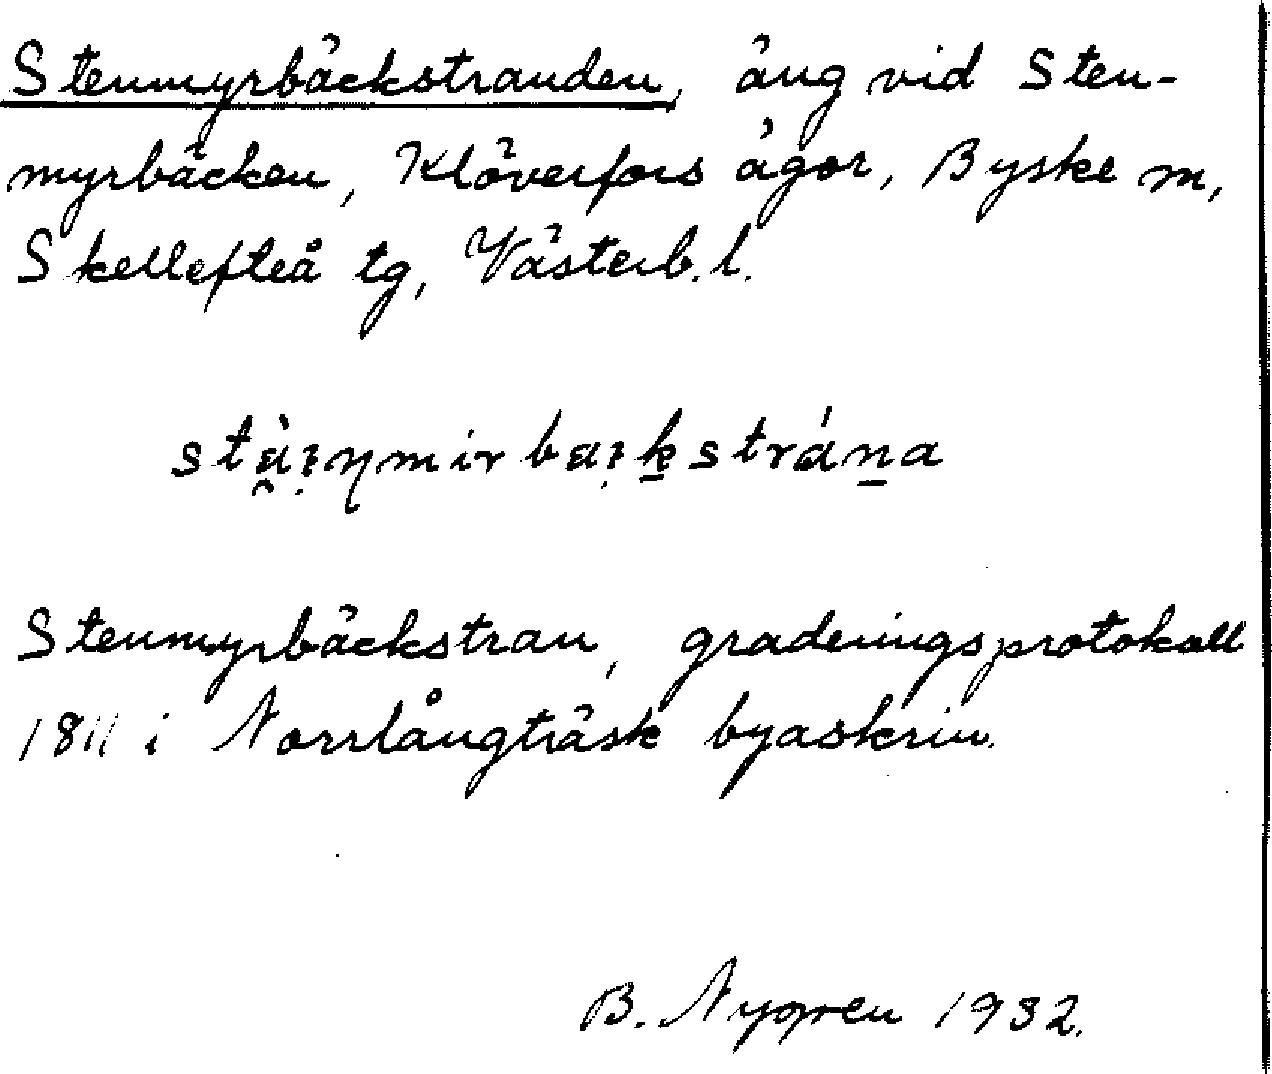 Stenmyrbäckstranden, äng vid Sten-
myrbäcken, Klöverfors ägor, Byske sn,
Skellefteå tg, Västerb. l.
Stenmyrbäckstran, graderingsprotokoll
1811 i Norrlångträsk byaskrin.
B. Nygren 1932.